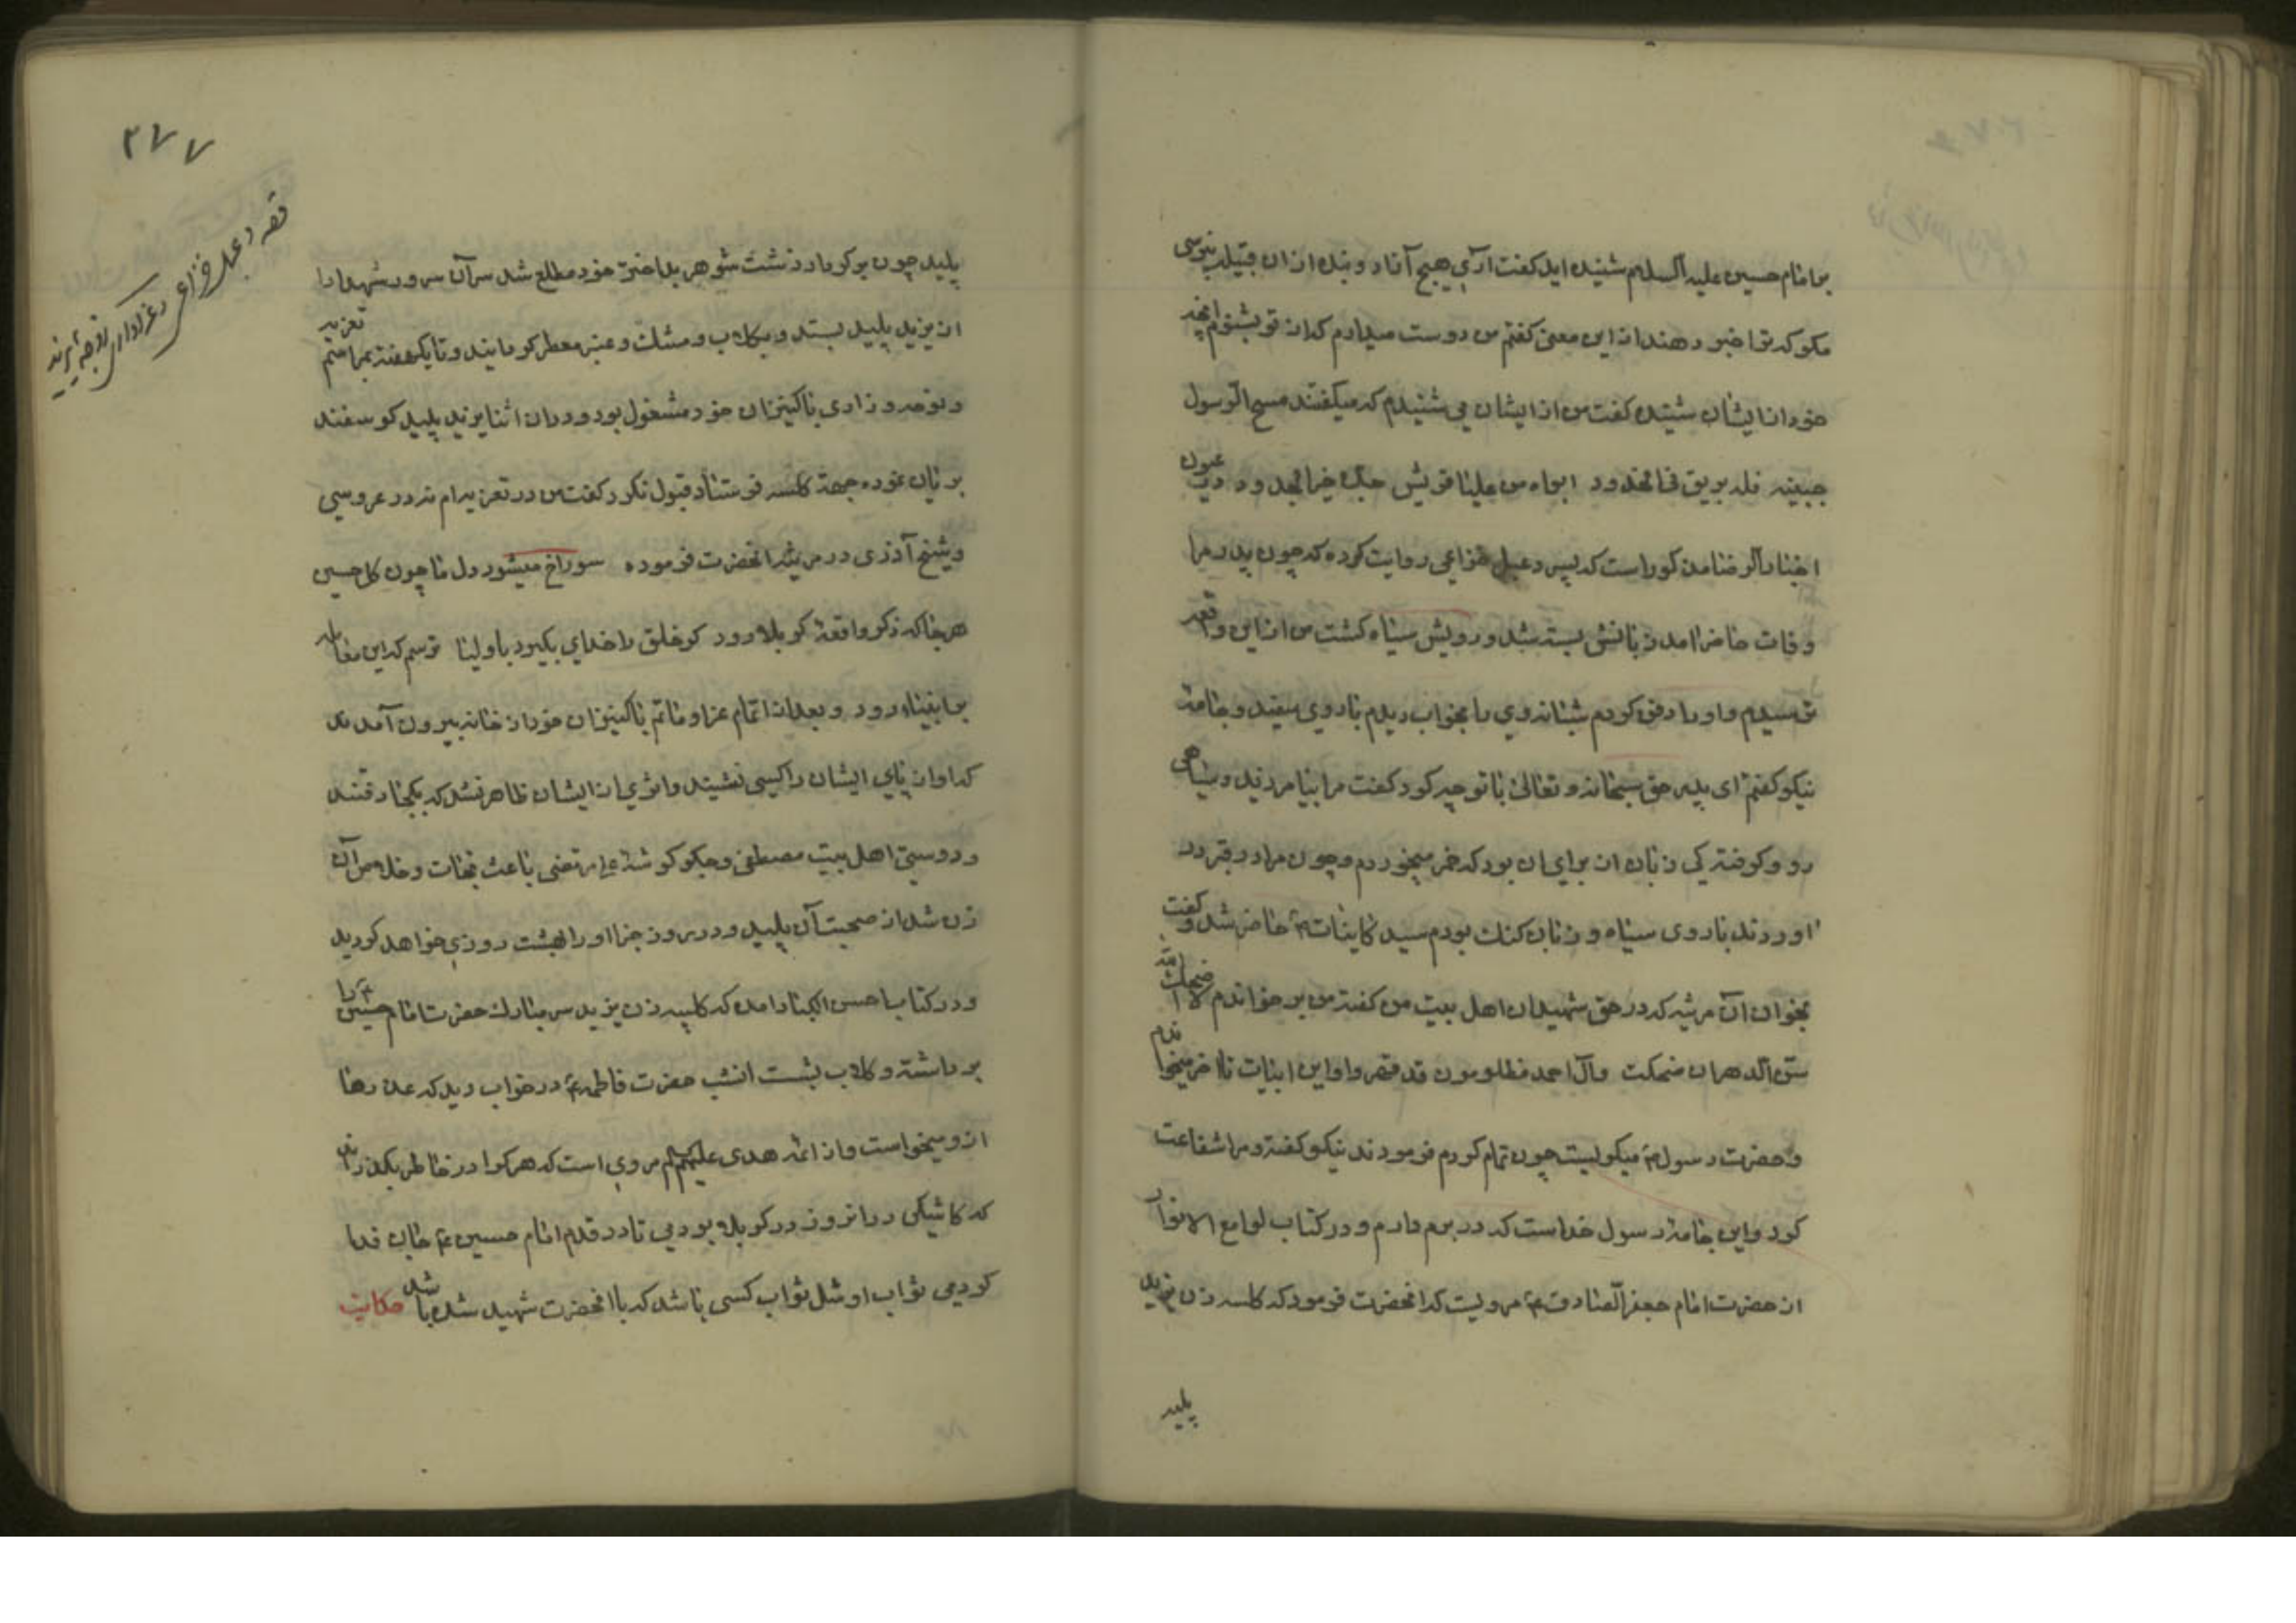 بر امام حسین علیه السلام شنیده اید گفت آری هیچ آزاد و بنده از آن قبیله نپرسی
مگر که ترا خبر دهند از این معنی گفتم من دوست میدارم که از تو بشنوم آنچه
خود از ایشان شنیده گفت من از ایشان می شنیدم که میگفتند مسح الرسول
جبینه فله بریق فی الخدود ابواه من علیا قریش جده خیر الجدود در عیون
اخبار الرضا مذکور است که پسر دعبل خزاعی روایت کرده که چون پدر مرا
وفات حاضر امد زبانش بسته شد و رویش سیاه گشت من از این واقعه
ترسیدم و او را دفن کردم شبانه وی را بخواب دیدم با روی سفید و جامه
نیکو گفتم ای پدر حق سبحانه و تعالی با تو چه کرد گفت مرا بیامرزید و سیاهی
رو و گرفته کی زبان از برای ان بود که خمر میخوردم و چون مرا در قبر در
اوردند با روی سیاه و زبان کنک بودم سید کاینات ص حاضر شد و گفت
بخوان آن مرثیه که در حق شهیدان اهل بیت من گفته من بر خواندم لا اضحک الله
سن الدهر ان ضحکت وآل احمد مظلومون قد قهروا و این ابیات تا اخر میخواندم
و حضرت رسول ص میگریست چون تمام کردم فرمودند نیکو گفته و مرا شفاعت
کرد و این جامه رسول خداست که در برم دارم و در کتاب لوامع الانوار
از حضرت امام جعفر الصادق ع مرویست که انحضرت فرمود که کلسه زن یزید
پلید
۳۷۷
قصه دعبل خزاعی و عزاداری زوجه یزید
پلید چون بر کردار زشت شوهر بداختر خود مطلع شد سر آن سرور شهدا را
از یزید پلید بستد و بگلاب و مشک و عنبر معطر گردانید و تا یکهفته بمراسم تعزیه
و نوحه و زاری با کنیزان خود مشغول بود و در ان اثنا یزید پلید گوسفند
بریان نموده جهة کلسه فرستاد قبول نکرد گفت من در تعزیه ام نه در عروسی
و شیخ آذری در مرثیه انحضرت فرموده سوراخ میشود دل ما چون گل حسین
هر جا که ذکر واقعه کربلا رود گر خلق را خدای بگیرد باولیا ترسم که این معامله
بر انبیاء رود و بعد از اتمام عزا و ماتم با کنیزان خود از خانه بیرون آمدند
که اواز پای ایشان را کسی نشنید و اثری از ایشان ظاهر نشد که بکجا رفتند
و دوستی اهل بیت مصطفی و جگر گوشه علی مرتضی باعث نجات و خلاص آن
زن شد از صحبت آن پلید و در روز جزا او را بهشت روزی خواهد گردید
و در کتاب احسن الکبار امده که کلسه زن یزید سر مبارک حضرت امام حسین ع را
برداشته و گلاب بشست انشب حضرت فاطمه ع در خواب دید که عذرها
از و میخواست و از ائمه هدی علیهم السلام مروی است که هر کرا در خاطر بگذراند
که کاشکی در انروز در کربلا بودمی تا در قدم امام حسین ع جان فدا
کردمی ثواب او مثل ثواب کسی باشد که با انحضرت شهید شده باشد حکایت